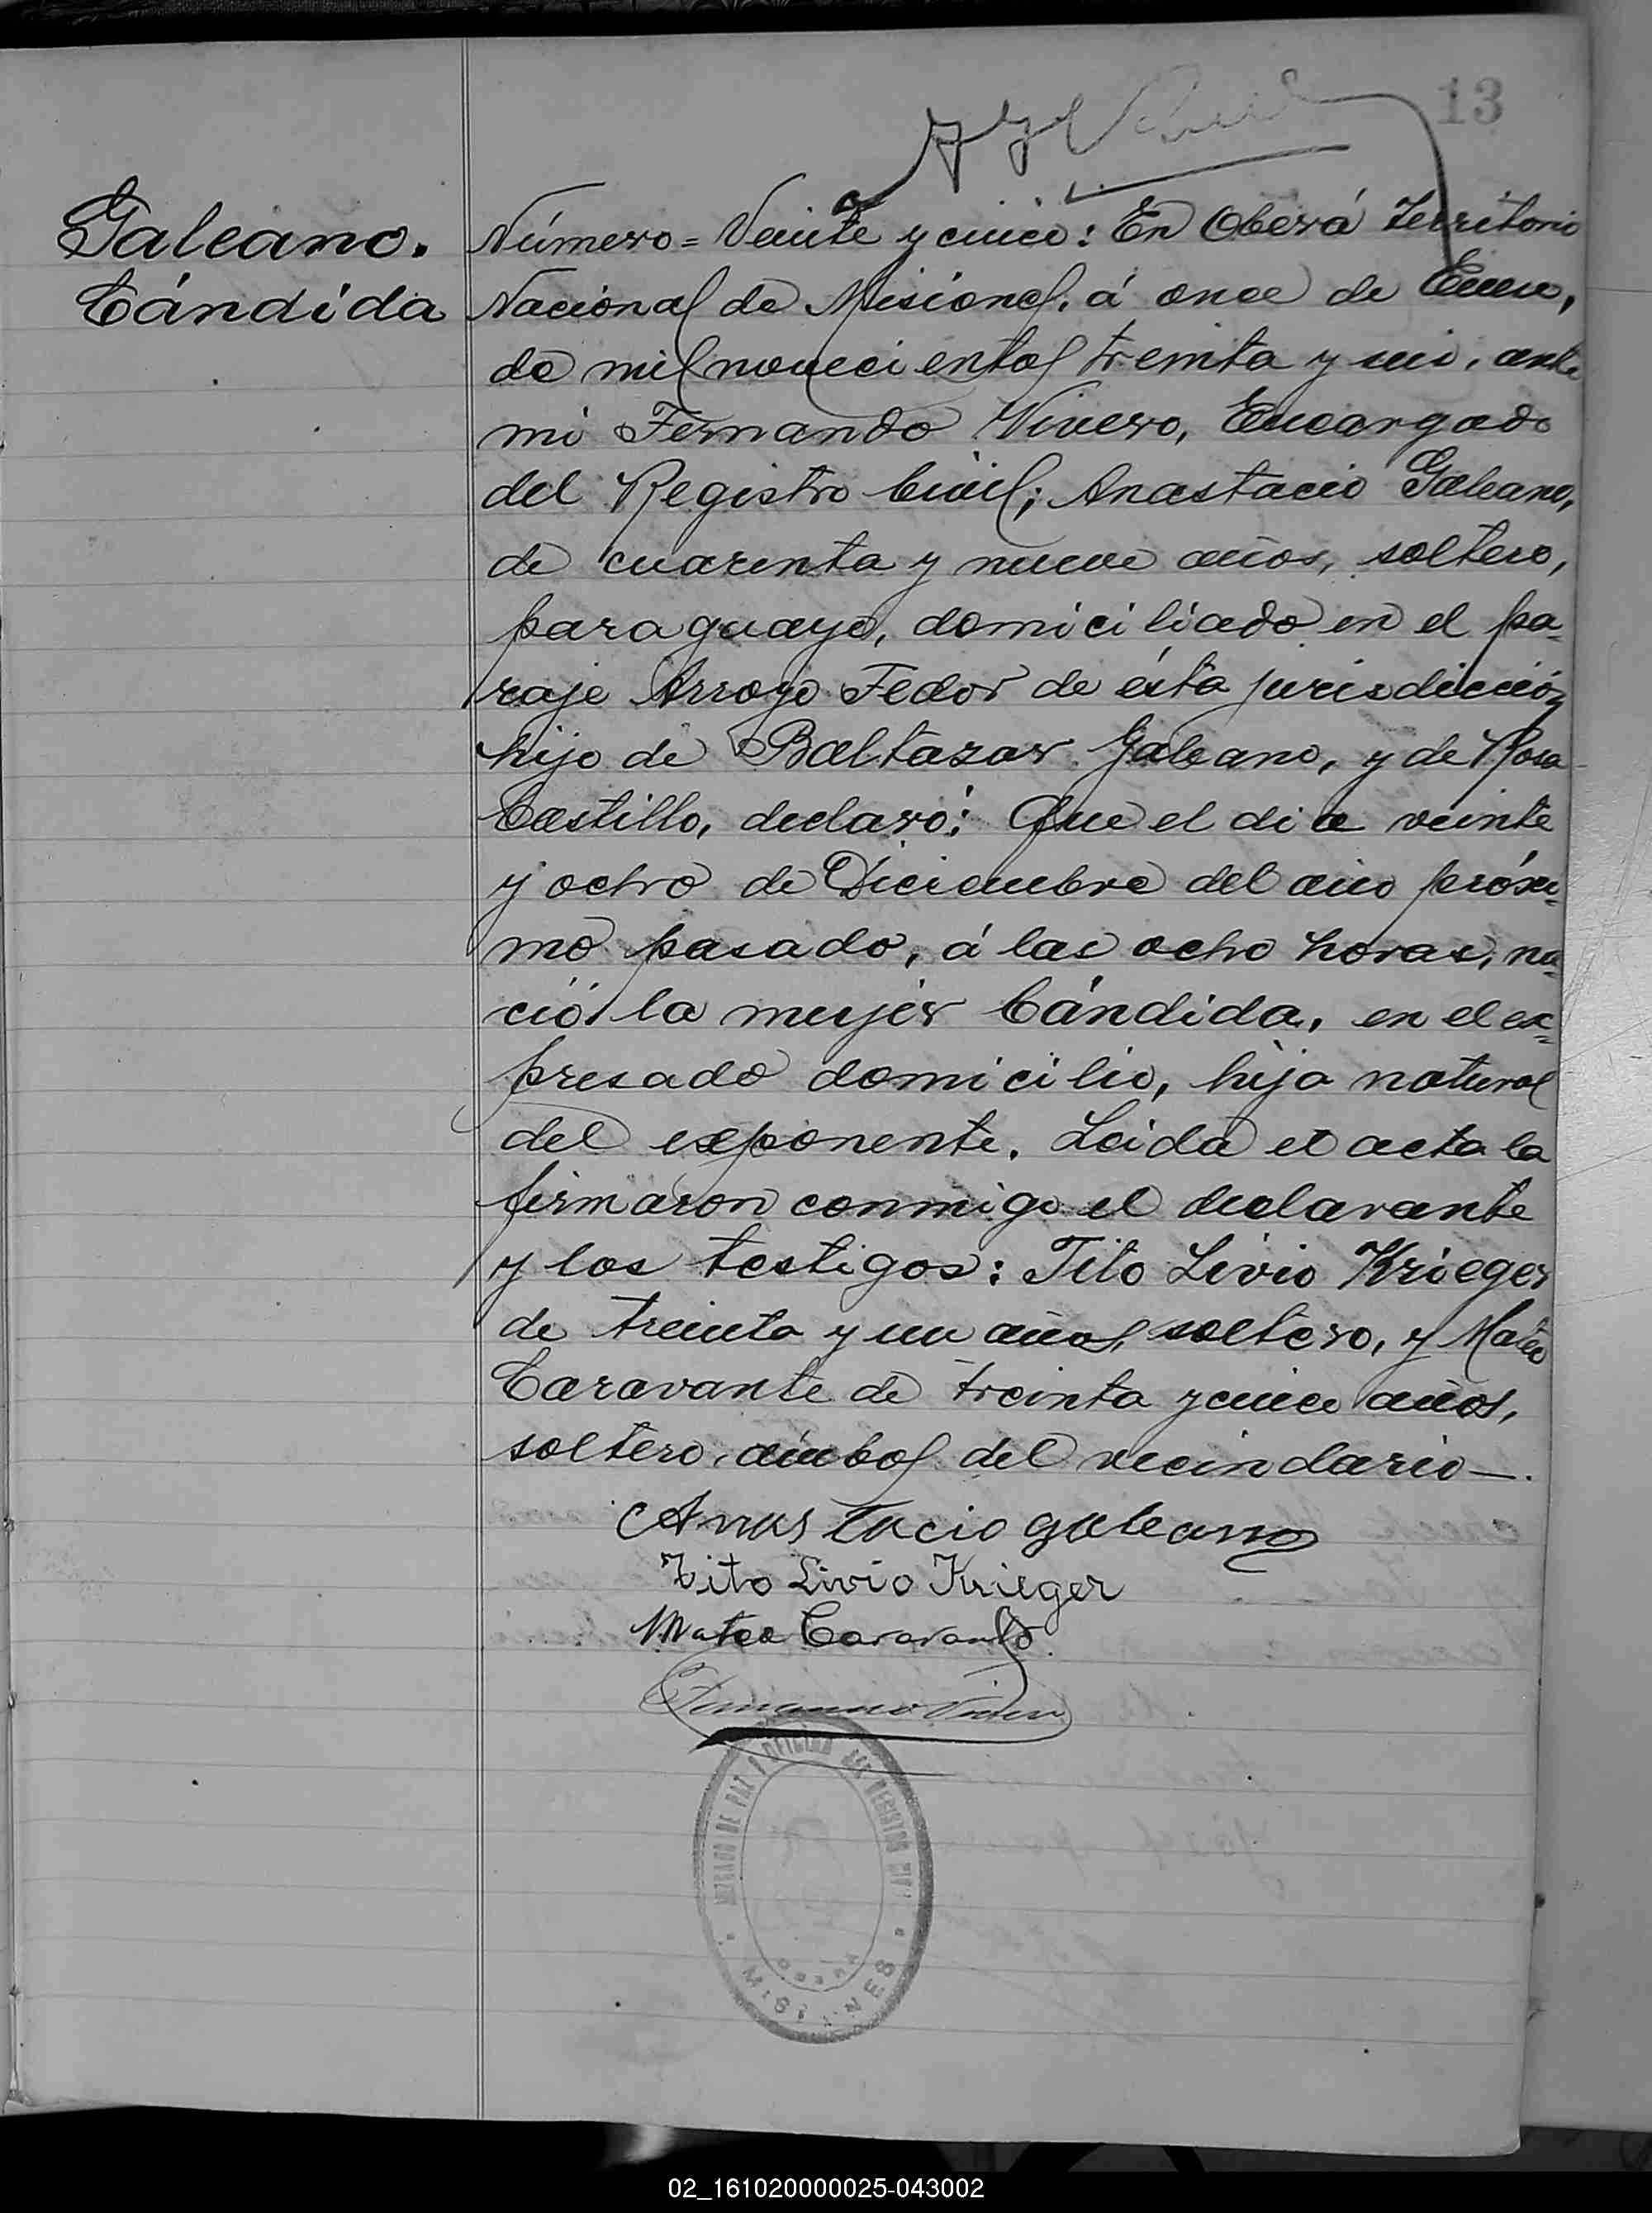 13
Galeano.
Cándida
Número = Veinte y cinco: En Oberá Territorio
Nacional de Misiones, á once de Enero,
de mil novecientos treinta y seis, ante
mi Fernando Vivero, Encargado
del Registro Civil; Anastacio Galeano,
de cuarenta y nueve años, soltero,
paraguayo, domiciliado en el pa-
raje Arroyo Fedor de ésta jurisdicción
hijo de Baltazar Galeano, y de Rosa
Castillo, declaró: Que el dia veinte
y ocho de Diciembre del año próxi-
mo pasado, á las ocho horas, na-
ció la mujer Cándida, en el ex-
presado domicilio, hija natural
del exponente. Leida el acta la
firmaron conmigo el declarante
y los testigos: Tito Livio Krieger
de treinta y un años, soltero, y Mateo
Caravante de treinta y cinco años,
soltero, ambos del vecindario —.
Anastacio galeano
Tito Livio Krieger
Mateo Caravante
Fernando Vivero
JUZGADO DE PAZ Y OFICINA DEL REGISTRO CIVIL
OBERÁ
MISIONES
02_161020000025-043002